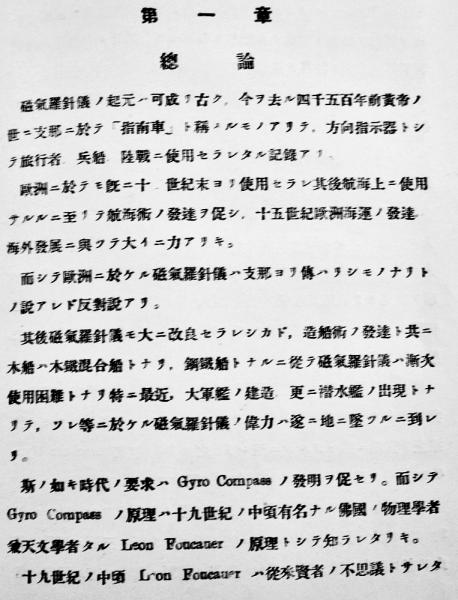 第一章
總論
磁氣羅針儀ノ起元ハ可成リ古ク，今ヲ去ル四千五百年前黄帝ノ
世ニ支那ニ於テ「指南車」ト稱スルモノアリテ，方向指示器トシ
テ旅行者，兵船，陸戰ニ使用セラレタル記錄アリ
歐洲ニ於テモ旣ニ十 世紀末ヨリ使用セラレ其後航海上ニ使用
サルルニ至リテ航海術ノ發達ヲ促シ，十五世紀歐洲海運ノ發達
海外發展ニ與ツテ大イニ力アリキ。
而シテ歐洲ニ於ケル磁氣羅針儀ハ支那ヨリ傳ハリシモノナリト
ノ說アレド反對說アリ。
其後磁氣羅針儀モ大ニ改良セラレシカド，造船術ノ發達ト共ニ
木船ハ木鐵混合船トナリ，鋼鐵船トナルニ從テ磁氣羅針儀ハ漸次
使用困難トナリ特ニ最近，大軍艦ノ建造 更ニ潜水艦ノ出現トナ
リテ，ソレ等ニ於ケル磁氣羅針儀ノ偉力ハ遂ニ地ニ墜ツルニ到レ
リ。
斯ノ如キ時代ノ要求ハ Gyro Compass ノ發明ヲ促セリ。而シテ
Gyro Compass ノ原理ハ十九世紀ノ中頃有名ナル佛國ノ物理學者
兼天文學者タル Leon Foucauer ノ原理トシテ知ラレタリキ。
十九世紀ノ中頃 Leon Foucauer ハ從來賢者ノ不思議トサレタ